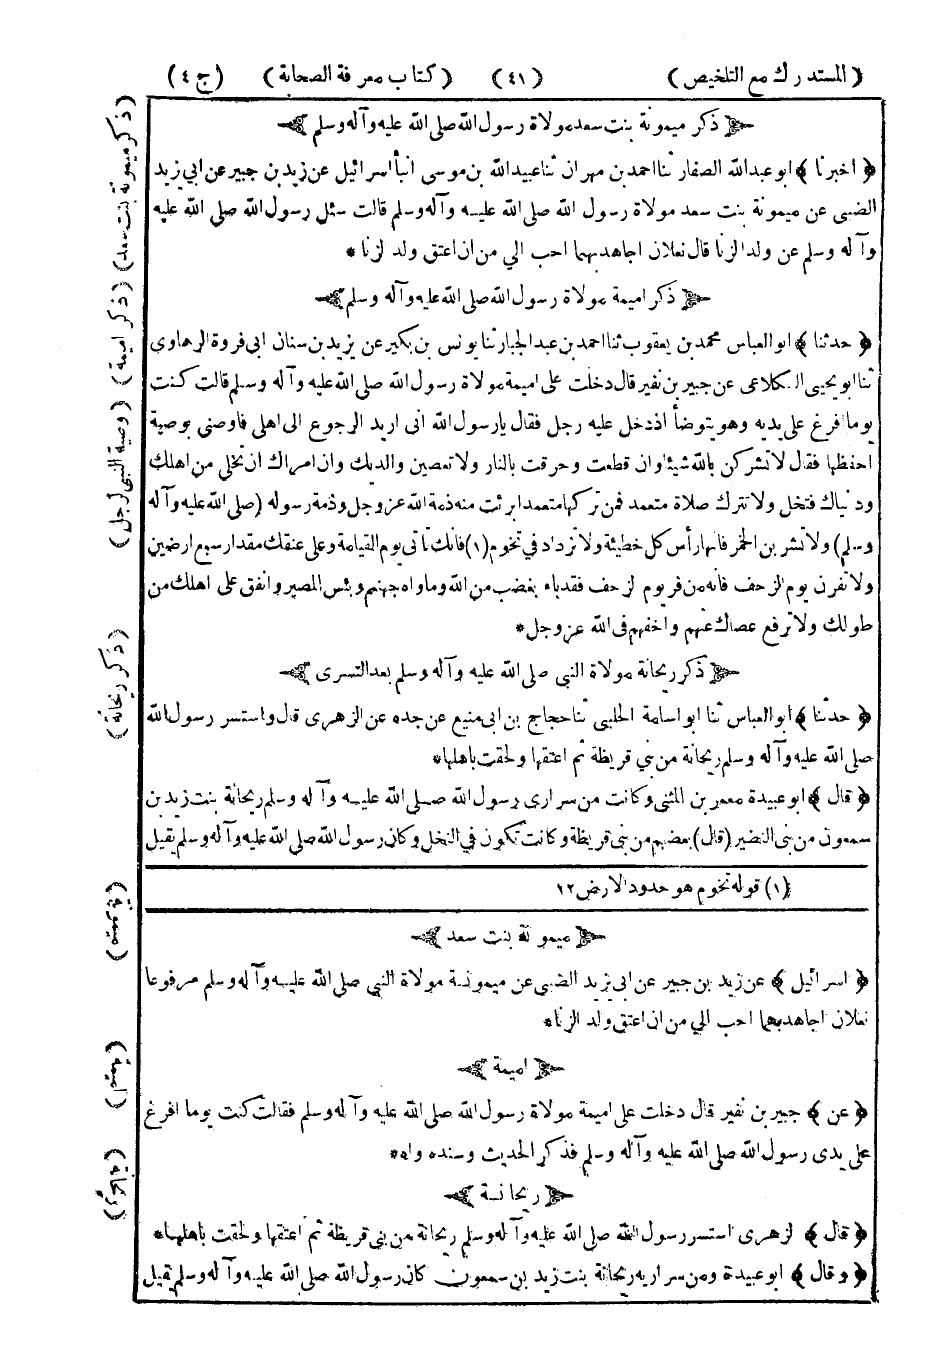 (المستدرك مع التلخيص) (٤١) (كتاب معرفة الصحابة) (ج ٤)
ذكر ميمونة بنت سعد مولاة رسول الله صلى الله عليه وآله وسلم
﴿ اخبرنا ﴾ ابو عبد الله الصفار ثنا احمد بن مهران ثنا عبيد الله بن موسى انبأ اسرائيل عن زيد بن جبير عن ابي زيد
الضبى عن ميمونة بنت سعد مولاة رسول الله صلى الله عليه وآله وسلم قالت سئل رسول الله صلى الله عليه
وآله وسلم عن ولد الزنا قال نعلان اجاهد بهما احب الي من ان اعتق ولد الزنا *
ذكر اميمة مولاة رسول الله صلى الله عليه وآله وسلم
﴿ حدثنا ﴾ ابو العباس محمد بن يعقوب ثنا احمد بن عبد الجبار ثنا يونس بن بكير عن يزيد بن سنان ابى فروة الرهاوى
ثنا ابو يحيى الكلاعى عن جبير بن نفير قال دخلت على اميمة مولاة رسول الله صلى الله عليه وآله وسلم قالت كنت
يوما افرغ على يديه وهو يتوضأ اذ دخل عليه رجل فقال يا رسول الله انى اريد الرجوع الى اهلى فاوصنى بوصية
احفظها فقال لا تشركن بالله شيئا وان قطعت وحرقت بالنار ولا تعصين والديك وان امراك ان تخلي من اهلك
ودنياك فتخل ولا تترك صلاة متعمد فمن تركها متعمدا برئت منه ذمة الله عز وجل وذمة رسوله (صلى الله عليه وآله
وسلم) ولا تشربن الخمر فانها رأس كل خطيئة ولا تزداد في تخوم (١) فانك تأتى يوم القيامة وعلى عنقك مقدار سبع ارضين
ولا تفرن يوم الزحف فانه من فر يوم الزحف فقد باء بغضب من الله وماواه جهنم وبئس المصير وانفق على اهلك من
طولك ولا ترفع عصاك عنهم واخفهم فى الله عز وجل *
ذكر ريحانة مولاة النبي صلى الله عليه وآله وسلم بعد التسرى
﴿ حدثنا ﴾ ابو العباس ثنا ابو اسامة الحلبي ثنا حجاج بن ابى منيع عن جده عن الزهرى قال واستسر رسول الله
صلى الله عليه وآله وسلم ريحانة من بني قريظة ثم اعتقها ولحقت باهلها *
﴿ قال ﴾ ابو عبيدة معمر بن المثنى وكانت من سرارى رسول الله صلى الله عليه وآله وسلم ريحانة بنت زيد بن
سمعون من بنى النضير (قال) بعضهم من بنى قريظة وكانت تكون في النخل وكان رسول الله صلى الله عليه وآله وسلم يقيل
(١) قوله تخوم هو حدود الارض ١٢
ميمونة بنت سعد
﴿ اسرائيل ﴾ عن زيد بن جبير عن ابى يزيد الضبى عن ميمونة مولاة النبي صلى الله عليه وآله وسلم مرفوعا
نعلان اجاهد بهما احب الي من ان اعتق ولد الزنا *
اميمة
﴿ عن ﴾ جبير بن نفير قال دخلت على اميمة مولاة رسول الله صلى الله عليه وآله وسلم فقالت كنت يوما افرغ
على يدى رسول الله صلى الله عليه وآله وسلم فذكر الحديث وسنده واه *
ريحانة
﴿ قال ﴾ الزهرى استسر رسول الله صلى الله عليه وآله وسلم ريحانة من بني قريظة ثم اعتقها ولحقت باهلها *
﴿ وقال ﴾ ابو عبيدة ومن سراريه ريحانة بنت زيد بن سمعون كان رسول الله صلى الله عليه وآله وسلم يقيل
(ذكر ميمونة بنت سعد)
(ذكر اميمة)
(وصية النبي لرجل)
(ذكر ريحانة)
(ميمونة)
(اميمة)
(ريحانة)